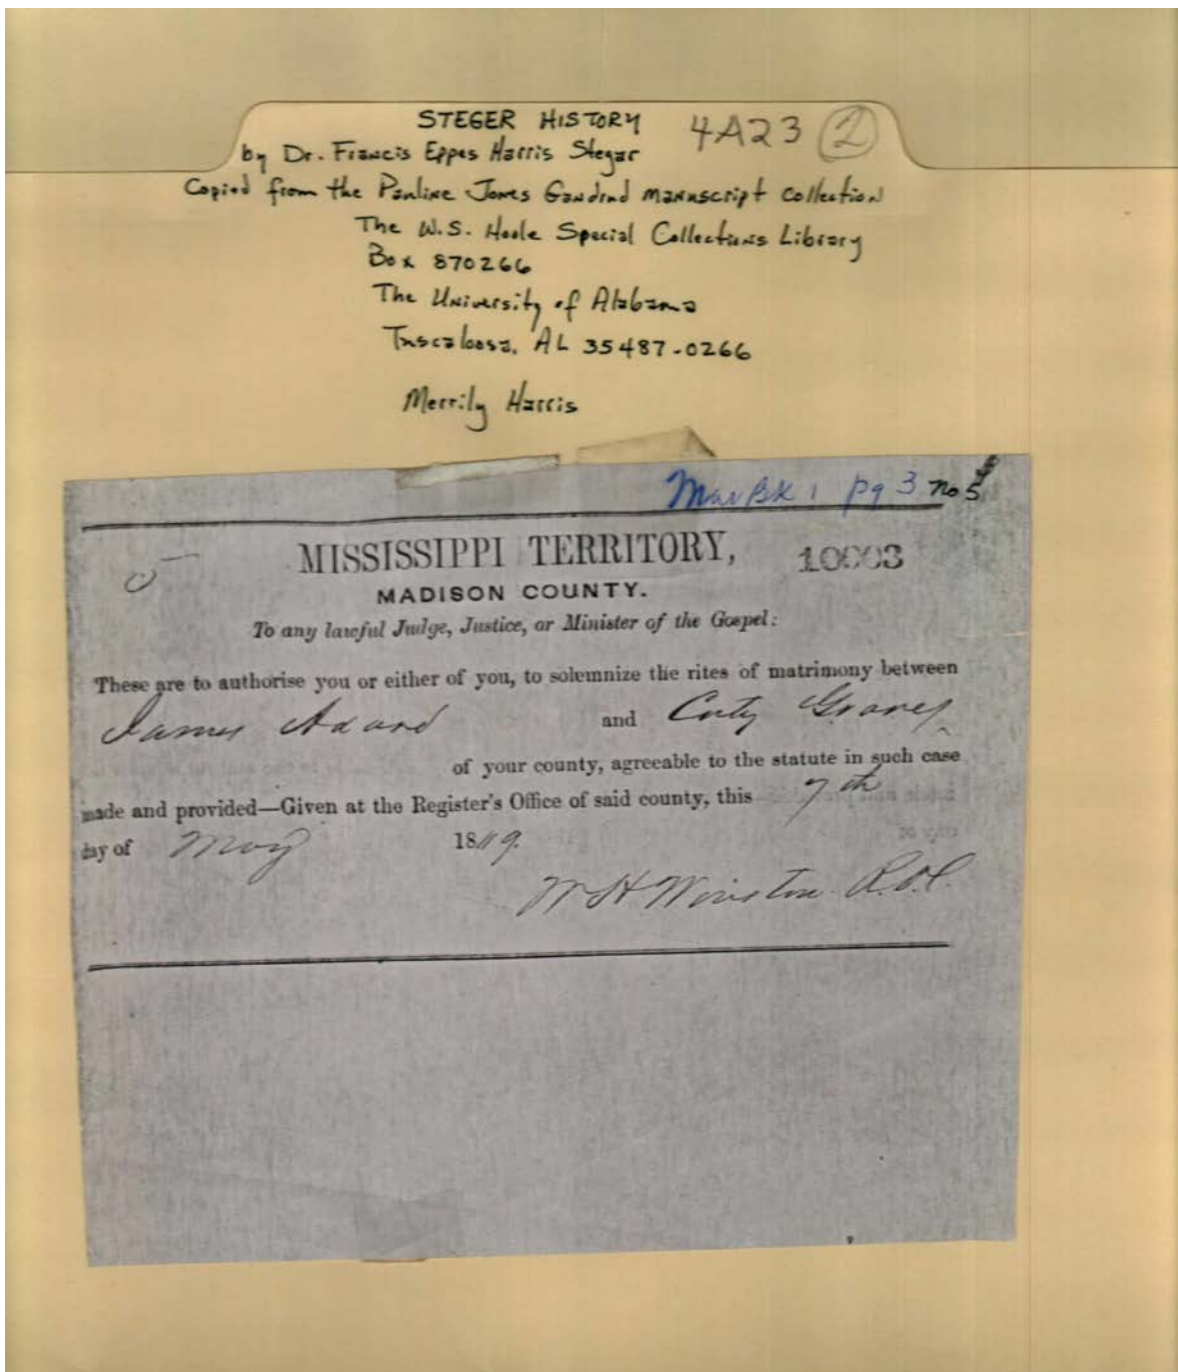 STEGER HISTORY 4A23 2
by Dr. Francis Eppes Harris Stegar
Copied from the Pauline Jones Gandrud manuscript collection
The W.S. Hoole Special Collections Library
Box 870266
The University of Alabama
Tuscaloosa, AL 35487-0266
Merrily Harris
Mar Bk 1 pg 3 no 5
MISSISSIPPI TERRITORY, 10003
5
MADISON COUNTY.
To any lawful Judge, Justice, or Minister of the Gospel:
These are to authorise you or either of you, to solemnize the rites of matrimony between
James and Graves
of your county, agreeable to the statute in such case
made and provided—Given at the Register's Office of said county, this 7th
day of May 18
W H Winston